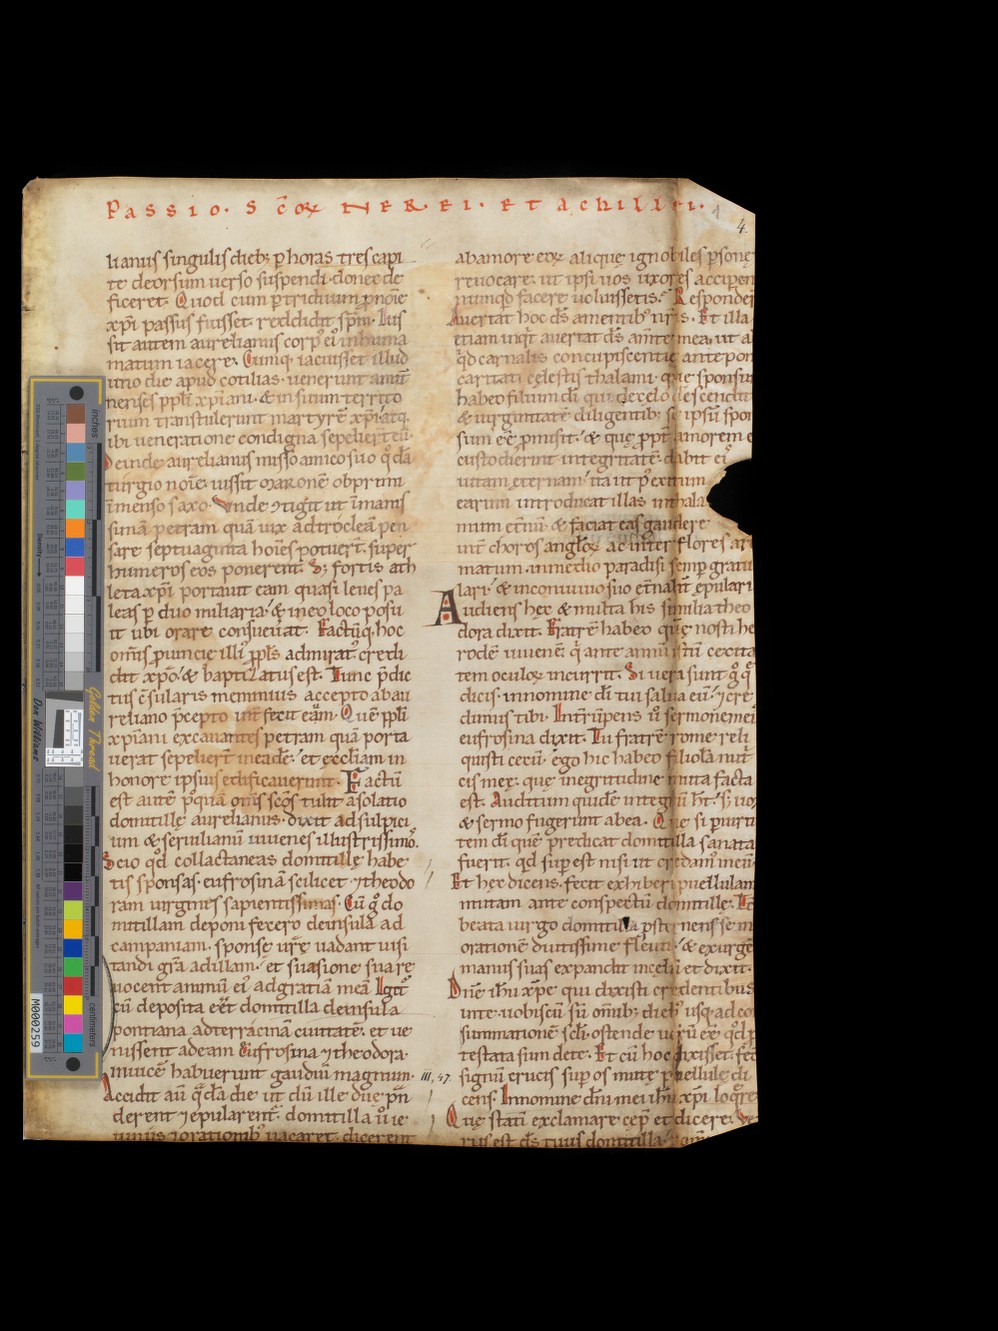 Passio. S c̄oꝝ NEREI. Et achillei.
1
4
lianus singulis dieb; ꝑ horas tres capi
te deorsum uerso suspendi. donec de
ficeret. Quod cum ꝑ triduum ꝓ nōīe
xp̄i passus fuisset. reddidit sp̄m. Ius
sit autem aurelianus corp᾽ ei᾽ inhuma
matum iacere. Cumq; iacuisset illud
uno die apud cotilias. uenerunt amit̄
nenses ppl̄i xp̄iani. & in suum territo
rium transtulerunt martyrē xp̄i. atq;
ibi ueneratione condigna sepeliert̄ eū.
Deinde aurelianus misso amico suo q᾽dā
turgio noīe. iussit maronē obprimi
īmenso saxo. Vnde ⁊tigit ut īmanis
simā petram quā uix ad trocleā pen
sare septuaginta hoīes potuert̄. super
humeros eos ponerent. S; fortis ath
leta xp̄i portauit eam quasi leues pa
leas ꝑ duo miliaria. & in eo loco posu
it ubi orare consueuerat. Factūq; hoc
om̄is ꝓuincię illi᾽ ppl̄s admirat᾽ credi
dit xp̄o. & baptizatus est. Tunc p̄dic
tus c̄sularis memmius accepto ab au
reliano p̄cepto int̄fecit eām. Quē ppl̄i
xp̄iani excauantes petram quā porta
uerat sepeliert̄ in eadē. et eccl̄iam in
honore ipsius edificauerunt. Factū
est autē p᾽quam om̄s sc̄os tulit a solatio
domitillę aurelianus. dixit ad sulpici
um & seruilianū iuuenes illustrissimos.
Scio q᾽d collactaneas domitillę habe
tis sponsas. eufrosinā scilicet ⁊ theodo
ram uirgines sapientissimas. Cū g᾽ do
mitillam deponi fecero de insula ad
campaniam. sponsę ur̄ę uadant uisi
tandi gr̄a ad illam. et suasione sua re
uocent animū ei᾽ ad gratiam meā. Igit᾽
cū deposita eēt domitilla de insula
pontiana ad terracinā ciuitatē. et ue
nissent ad eam eufrosina ⁊ theodora.
inuicē habuerunt gaudiū magnum.
Accidit aū q᾽dā die ut cū ille due prn̄
derent ⁊ epularent᾽. domitilla ū ie
iuniis ⁊ orationib᾽ uacaret. dicerent
III, 47.
ab amore eoꝝ. alique ignobiles ꝑsone
reuocare. ut ipsi uos uxores acciperen
nunqd facere uoluissetis? Responder
Auertat hoc d̄s a mentib᾽ nr̄is. Et illa
etiam inq᾽t auertat d̄s a m̄te mea. ut a
q᾽d carnalis concupiscentię ante pon
caritati celestis thalami. que sponsu
habeo filium dī qui de celo descendit
& uirginitatē diligentib; se ipsū spon
sum eē ꝓmisit. & que ꝓpt̄ amorem e
custodierint integritatē. dabit ei᾽
uitam eternam. ita ut p᾽ exitum
earum introducat illas in thala
mum et̄nū. & faciat eas gaudere
int̄ choros angl̄oꝝ ac inter flores aro
matum. in medio paradisi semꝑ gratu
lari. & in conuiuio suo et̄nalit̄ epulari.
Audiens hęc & multa his similia theo
dora dixit. Fratrē habeo quē nosti he
rodē iuuenē. q᾽ ante annū istū cecita
tem oculoꝝ incurrit. Si uera sunt g᾽ q̄
dicis. in nomine dī tui salua eū. ⁊ cre
dimus tibi. Int᾽rūpens ū sermonem ei
eufrosina dixit. Tu fratrē rome reli
quisti cecū. ego hic habeo filiolā nut
cis meę. que in egritudine muta facta
est. Auditum quidē integrū ht̄. s; uox
& sermo fugerunt ab ea. Que si ꝑ uirtu
tem dī quē predicat domitilla sanata
fuerit. qd sup est nisi ut credam᾽ in eū.
Et hęc dicens. fecit exhiberi puellulam
mutam ante conspectū domitille. Tc̄
beata uirgo domitilla ꝓsternens se in
orationē diutissime fleuit. & exurge
manus suas expandit in celū et dixit.
Dn̄e ih̄u xp̄e qui dixisti credentibus
in te. uobiscū sū om̄ib; dieb᾽ usq; ad co
summationē sc̄li. ostende uerū eē q᾽d ꝓ
testata sum de te. Et cū hoc dixisset. fec
signū crucis sup os mutę puellule di
cens. In nomine dn̄i mei ih̄u xp̄i loq̄re
Que statī exclamare cep̄ et dicere. Ve
rus est d̄s tuus domitilla.
inches
centimeters
Golden Thread
Don Williams
M000259